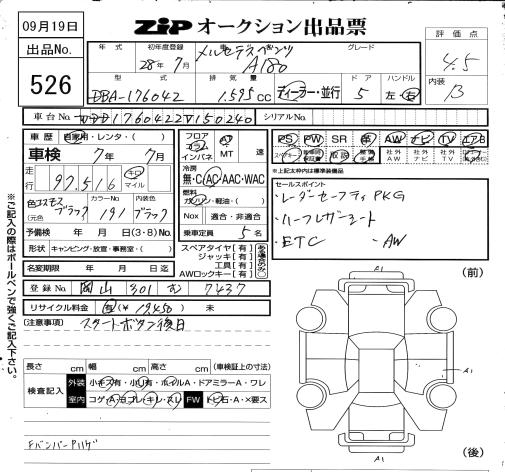 09月19日
ZiP オークション出品票
出品No.
526
年式 初年度登録 車名 グレード
28年 7月 メルセデスベンツ A180
評価点
4.5
内装
B
型式 排気量 ドア ハンドル
DBA-176042 1.595cc ディーラー・並行 5 左・右
車台No. WDD1760422V150240 シリアルNo.
車歴 自家用・レンタ・( )
車検 7年 7月
走行 97,516 キロ マイル
色 コスモスブラック カラーNo 191 ブラック
(元色
予備検 年 月 日(3・8)No.
形状 キャンピング・放宣・事務室・( )
名変期限 年 月 日迄
フロア コラム インパネ AT MT 速
冷房
無・C・AC・AAC・WAC
燃料
ガソリン・軽油・( )
Nox 適合・非適合
乗車定員 5 名
スペアタイヤ[有]
ジャッキ[有]
工具[有]
AWロックキー[有]
ある場合のみ〇
PS PW SR 革 AW ナビ TV エアB
スペアキー 取説 社外AW 社外ナビ 社外TV
※上記太枠内は標準装備品
セールスポイント
・レーダーセーフティPKG
・ハーフレザーシート
・ETC ・AW
登録No. 岡山 301 む 7437
リサイクル料金 有(¥ 19,450) 未
(注意事項) スタートボタン後日
長さ cm 幅 cm 高さ cm (車検証上の寸法)
検査記入 外装 小キズ有・小凹有・ホイルA・ドアミラーA・ワレ
室内 コゲ・A・ヨゴレ・キレ・スレ FW トビ石・A・×要ス
FバンパーP11ゲ
※ご記入の際はボールペンで強くご記入下さい。
(前)
A1
A1
A1
(後)